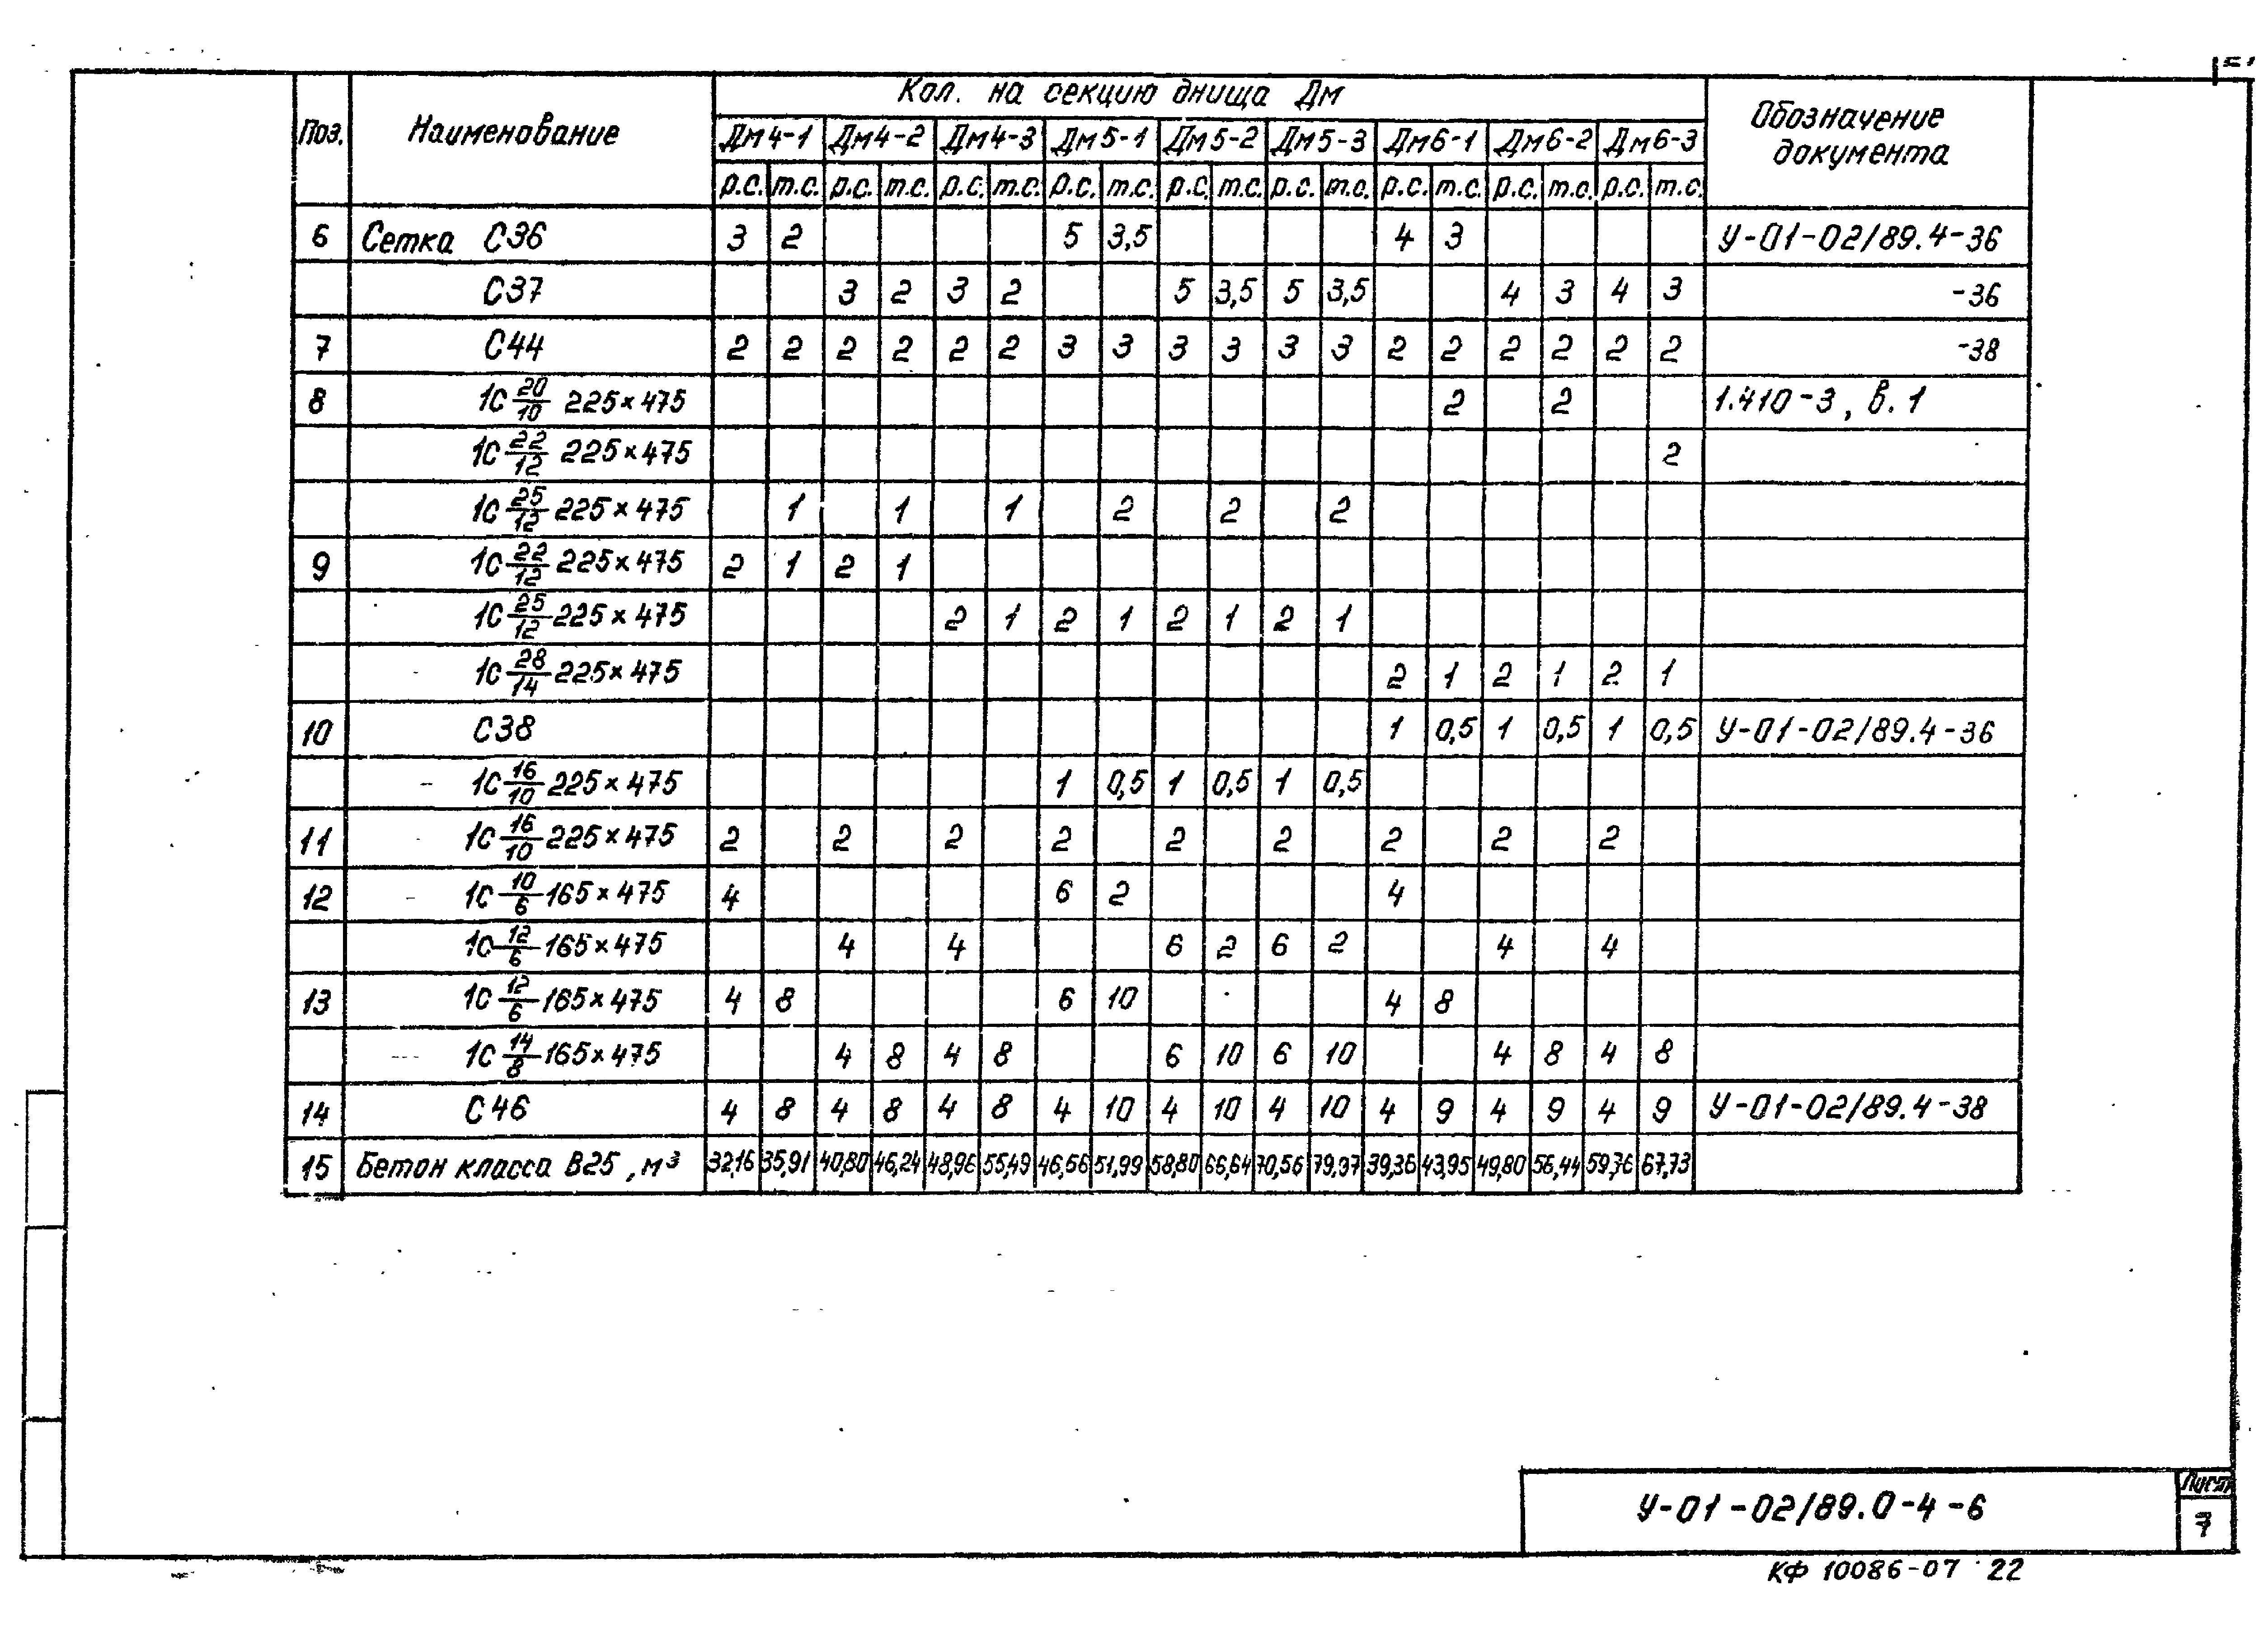 Поз. Наименование Кол. на секцию днища Дм Обозначение документа
Дм4-1 Дм4-2 Дм4-3 Дм5-1 Дм5-2 Дм5-3 Дм6-1 Дм6-2 Дм6-3
р.с. т.с. р.с. т.с. р.с. т.с. р.с. т.с. р.с. т.с. р.с. т.с. р.с. т.с. р.с. т.с. р.с. т.с.
6 Сетка С36 3 2 5 3,5 4 3 У-01-02/89.4-36
С37 3 2 3 2 5 3,5 5 3,5 4 3 4 3 -36
7 С44 2 2 2 2 2 2 3 3 3 3 3 3 2 2 2 2 2 2 -38
8 1С 20/10 225×475 2 2 1.410-3, в. 1
1С 22/12 225×475 2
1С 25/12 225×475 1 1 1 2 2 2
9 1С 22/12 225×475 2 1 2 1
1С 25/12 225×475 2 1 2 1 2 1 2 1
1С 28/14 225×475 2 1 2 1 2 1
10 С38 1 0,5 1 0,5 1 0,5 У-01-02/89.4-36
1С 16/10 225×475 1 0,5 1 0,5 1 0,5
11 1С 16/10 225×475 2 2 2 2 2 2 2 2 2
12 1С 10/6 165×475 4 6 2 4
1С 12/6 165×475 4 4 6 2 6 2 4 4
13 1С 12/6 165×475 4 8 6 10 4 8
1С 14/8 165×475 4 8 4 8 6 10 6 10 4 8 4 8
14 С46 4 8 4 8 4 8 4 10 4 10 4 10 4 9 4 9 4 9 У-01-02/89.4-38
15 Бетон класса В25, м³ 32,16 35,91 40,80 46,24 48,96 55,49 46,56 51,99 58,80 66,64 70,56 79,97 39,36 43,95 49,80 56,44 59,76 67,73
У-01-02/89.0-4-6
Лист
7
КФ 10086-07 22